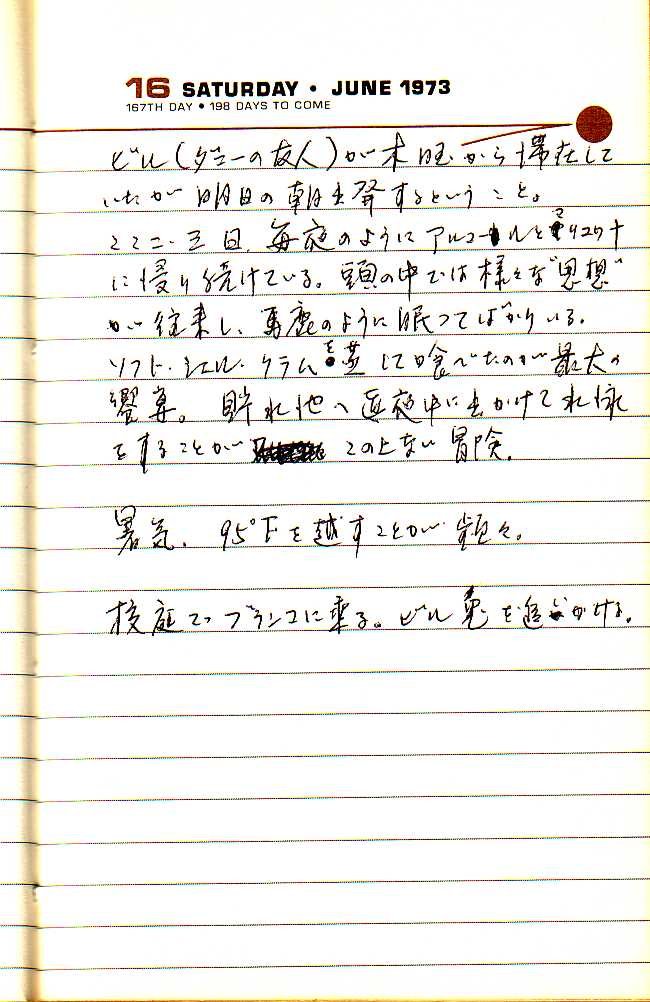 16 SATURDAY • JUNE 1973
167TH DAY • 198 DAYS TO COME
ビル(ダニーの友人)が木曜から滞在して
いたが明日の朝出発するということ。
ここ二、三日、毎夜のようにアルコールと
に浸り続けている。頭の中では様々な"思想"
が往来し、馬鹿のように眠ってばかりいる。
ソフト・シェル・クラムを蒸して喰べたのが最大の
饗宴。貯水池へ真夜中に出かけて水泳
をすることが この上ない冒険。
暑気、95°Fを越すことが頻々。
校庭でブランコに乗る。ビル兎を追いかける。